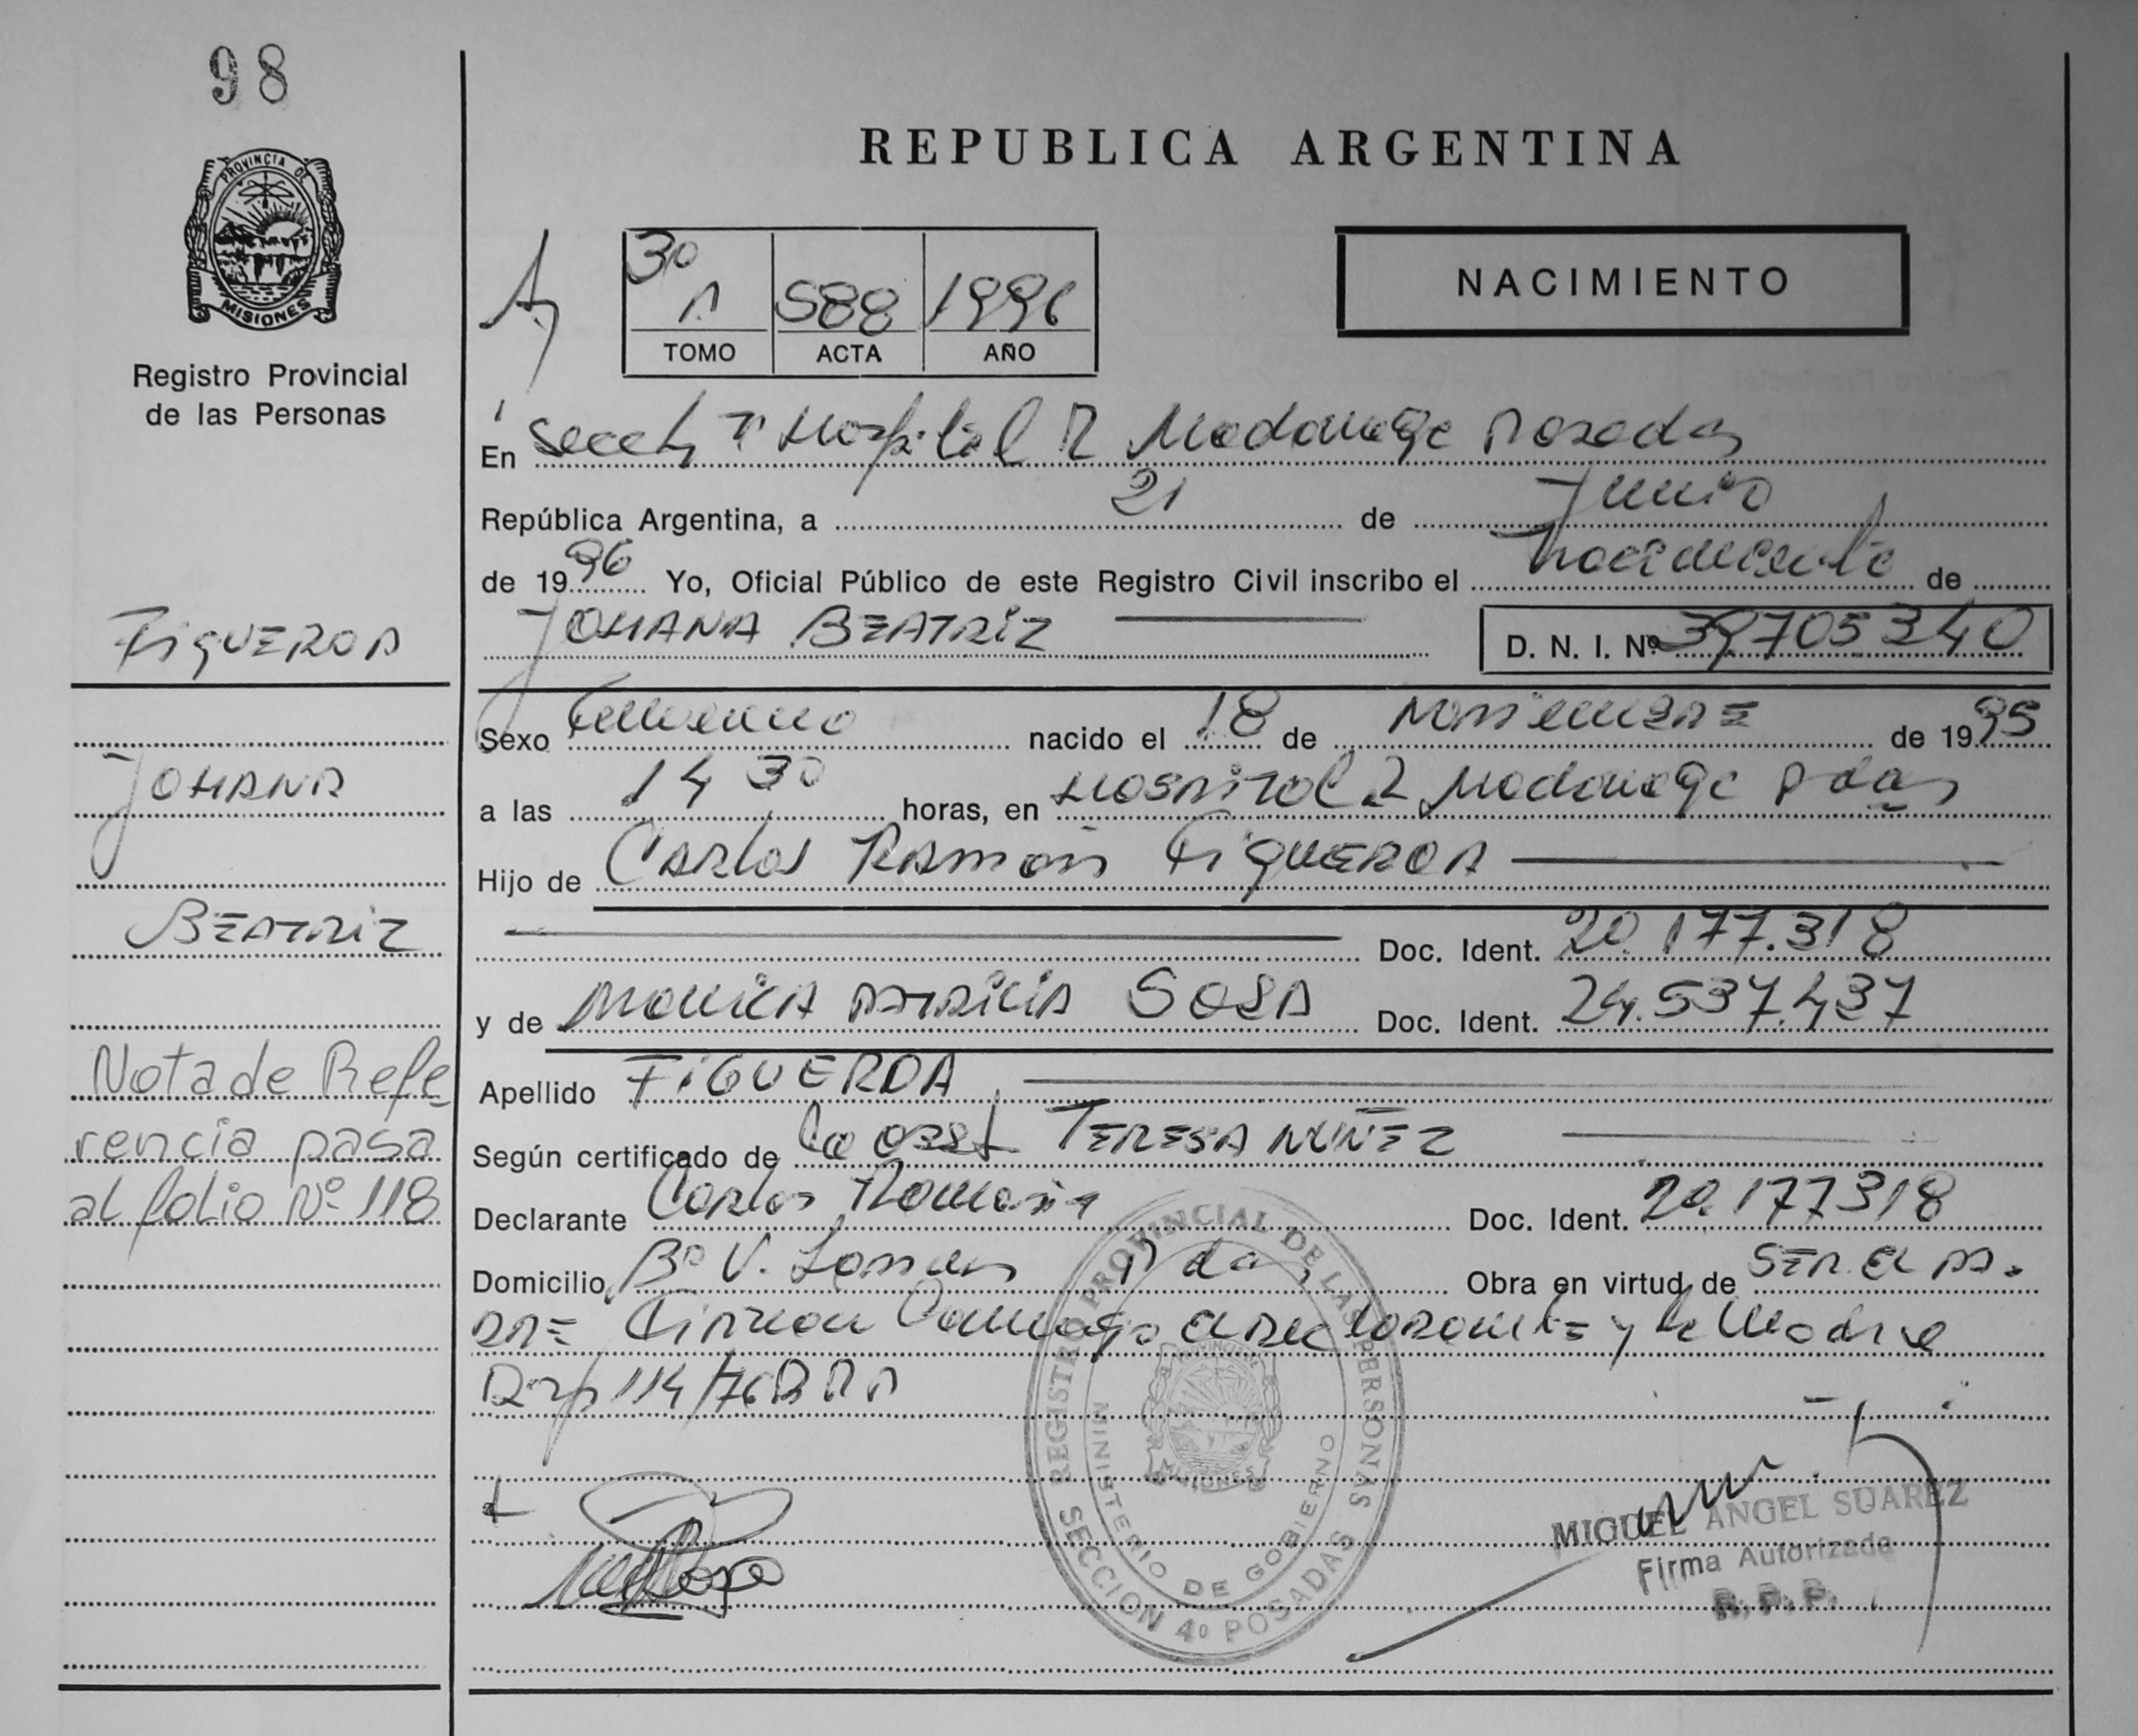 98
PROVINCIA DE
MISIONES
Registro Provincial
de las Personas
REPUBLICA ARGENTINA
3º
A 588 1996
TOMO ACTA AÑO
NACIMIENTO
En Secc 4ª Hospital R Madariaga Posadas
República Argentina, a 21 de Junio
de 1996 Yo, Oficial Público de este Registro Civil inscribo el nacimiento de
JOHANA BEATRIZ D. N. I. Nº 39705340
Sexo Femenino nacido el 18 de NOVIEMBRE de 1995
a las 14 30 horas, en HOSPITAL R Madariaga Pdas
Hijo de Carlos Ramón FIGUEROA
Doc. Ident. 20.177.318
y de MONICA PATRICIA SOSA Doc. Ident. 24.537.437
Apellido FIGUEROA
Según certificado de la obst TERESA NUÑEZ
Declarante Carlos Ramón Doc. Ident. 20.177318
Domicilio Bº V. Pdas Obra en virtud de SER EL PA-
DRE Firman Conmigo el declarante y la Madre
114/76
FIGUEROA
JOHANA
BEATRIZ
Nota de Refe-
rencia pasa
al folio Nº 118
REGISTRO PROVINCIAL DE LAS PERSONAS
MINISTERIO DE GOBIERNO
SECCION 4º POSADAS
PROVINCIA DE
MISIONES
MIGUEL ANGEL SUAREZ
Firma Autorizada
R. P. P.